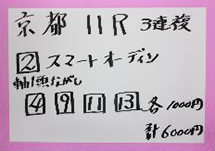 京都 11R 3連複
2 スマートオーディン
軸1頭ながし
4 9 11 13 各1000円
計6000円